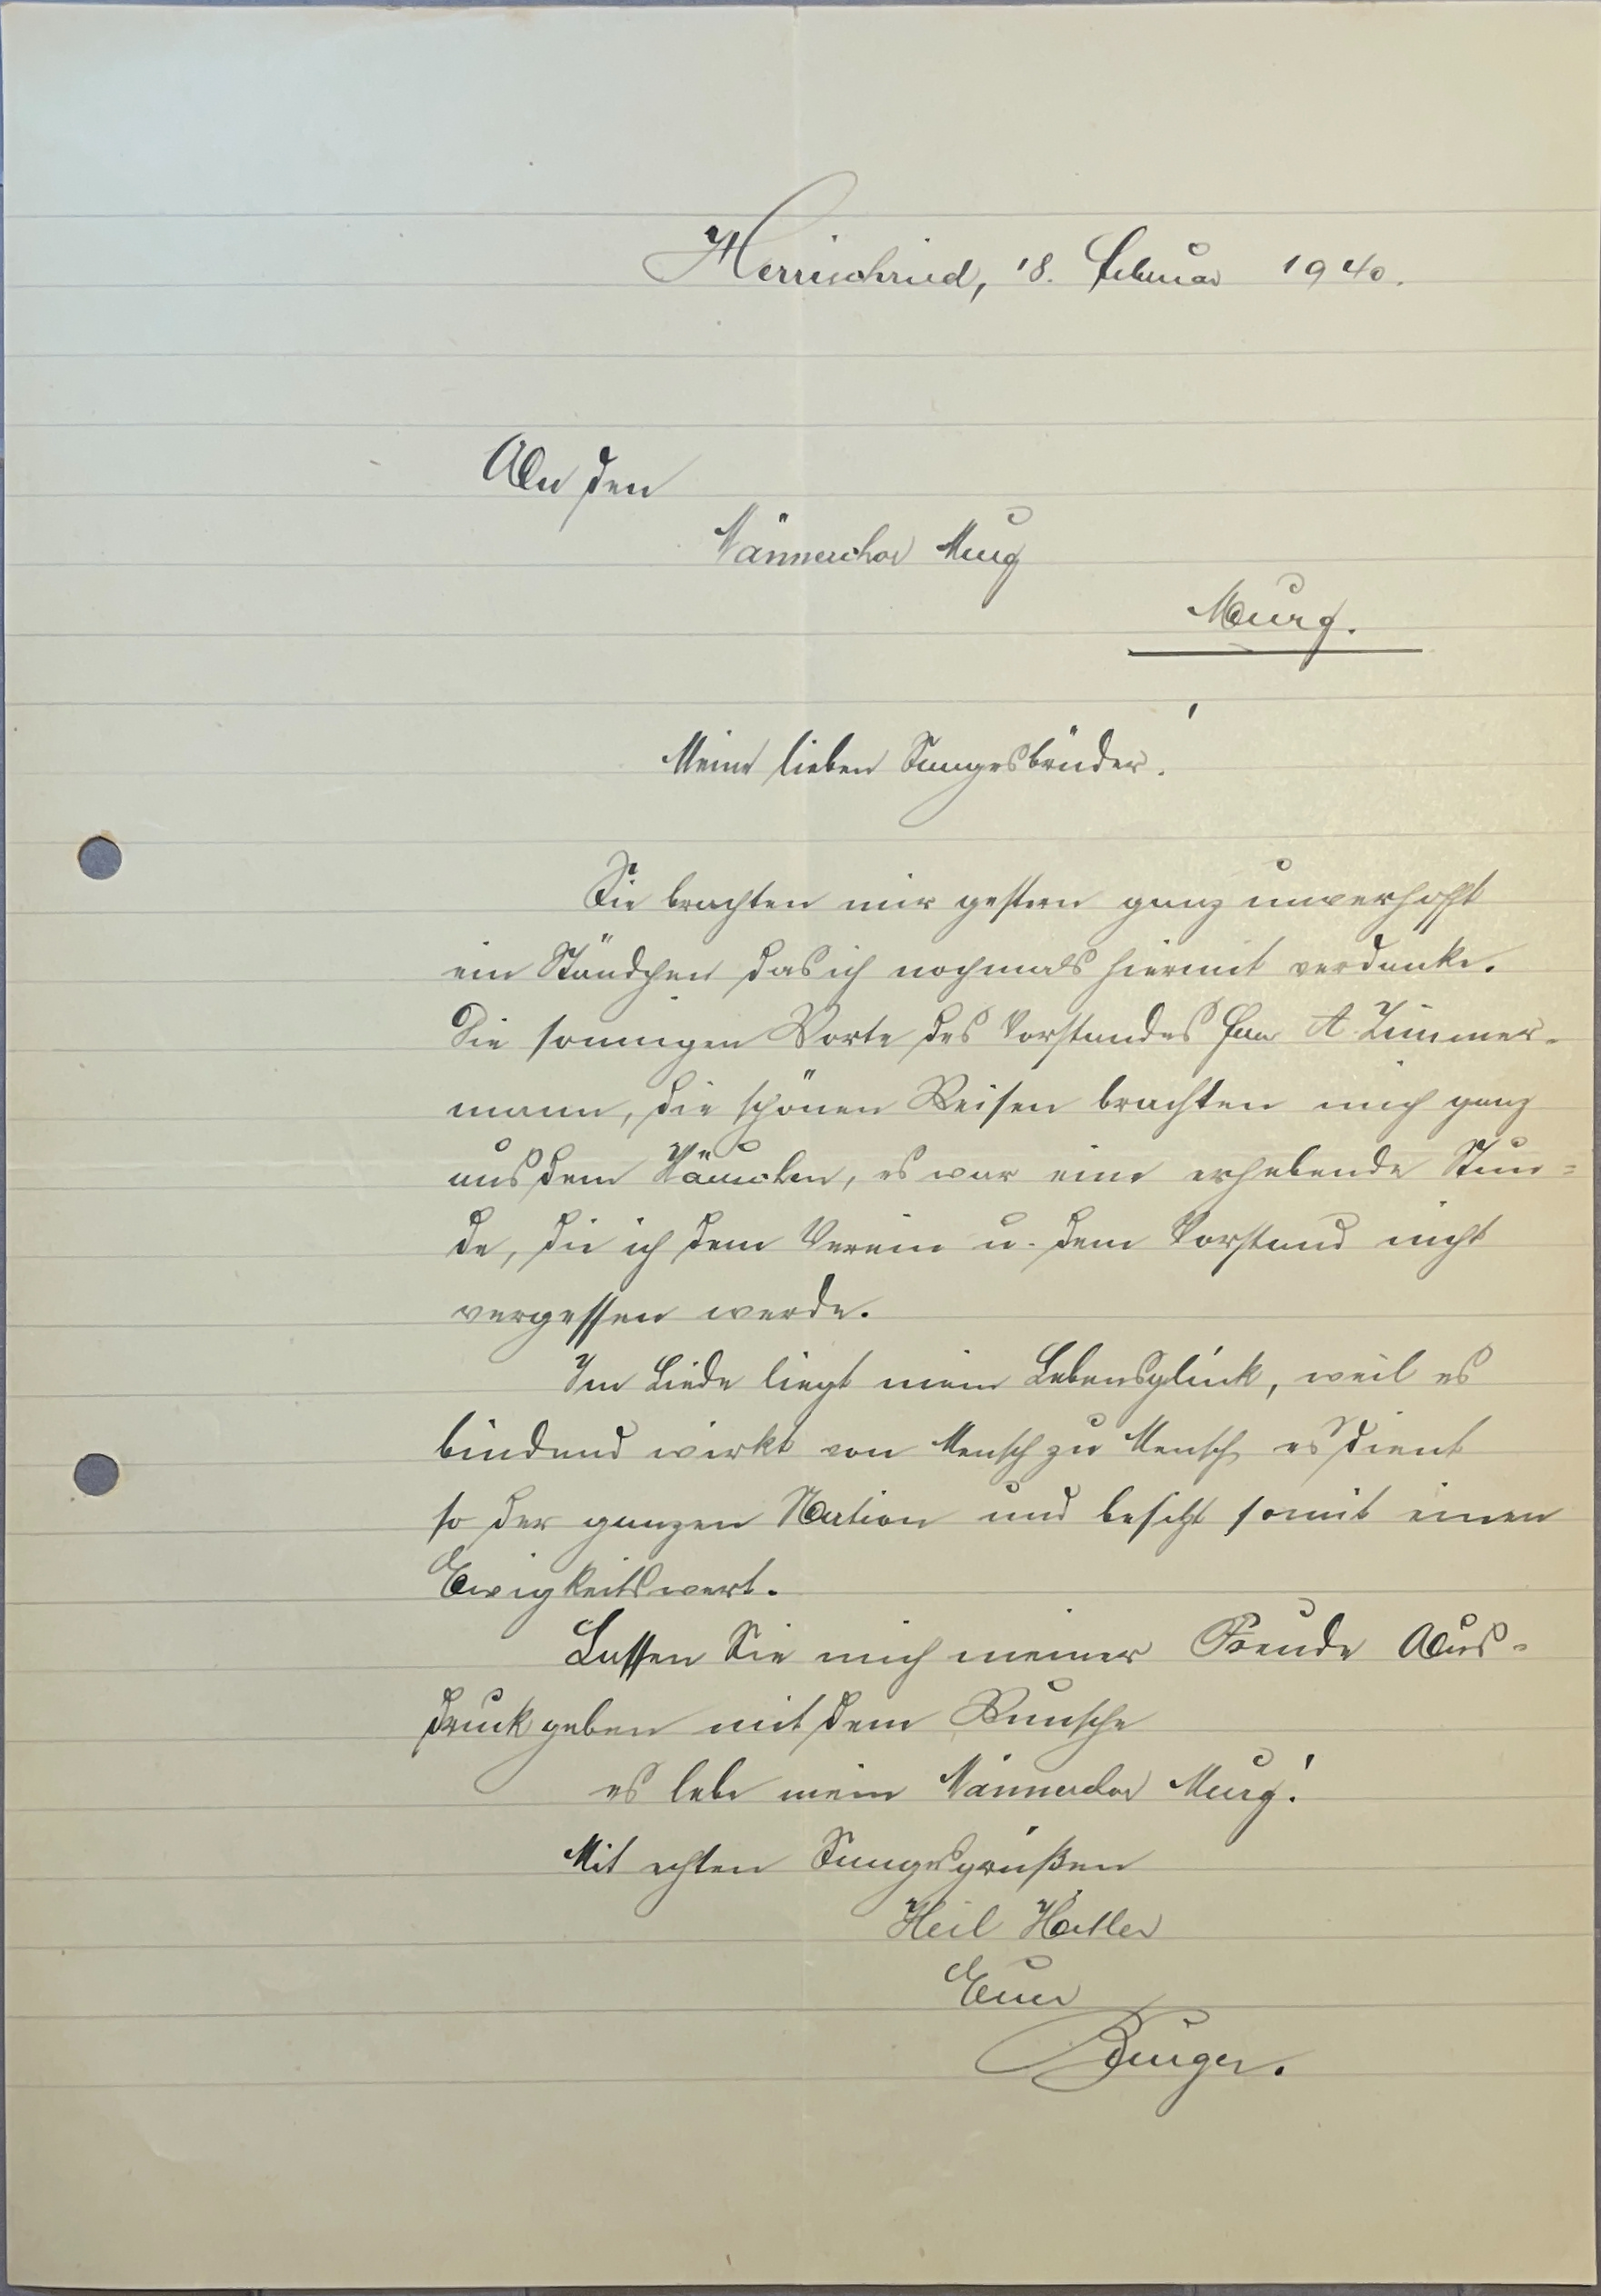 Herrischried, 18. Februar 1940.
An den
Männerchor Murg
Murg.
Meine lieben Sangesbrüder!
Sie brachten mir gestern ganz unverhofft
ein Ständchen das ich nochmals hiermit verdanke.
Die sonnigen Worte des Vorstandes Herrn A. Zimmer-
mann, die schönen Weisen brachten mich ganz
aus dem Häuschen, es war eine erhebende Stun=
de, die ich dem Verein u. dem Vorstand nicht
vergessen werde.
Im Liede liegt mein Lebensglück, weil es
bindend wirkt von Mensch zu Mensch es dient
so der ganzen Nation und besitzt somit einen
Ewigkeitswert.
Lassen Sie mich meiner Freude Aus=
druck geben mit dem Wunsche
es lebe mein Männerchor Murg!
Mit echten Sangesgrüßen
Heil Hitler
Euer
Burger.